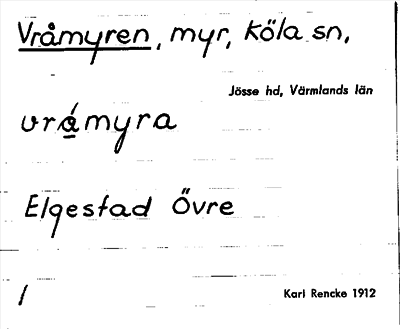 Vråmyren, myr, Köla sn,
Jösse hd, Värmlands län
vrá̱myra
Elgestad Övre
1
Karl Rencke 1912